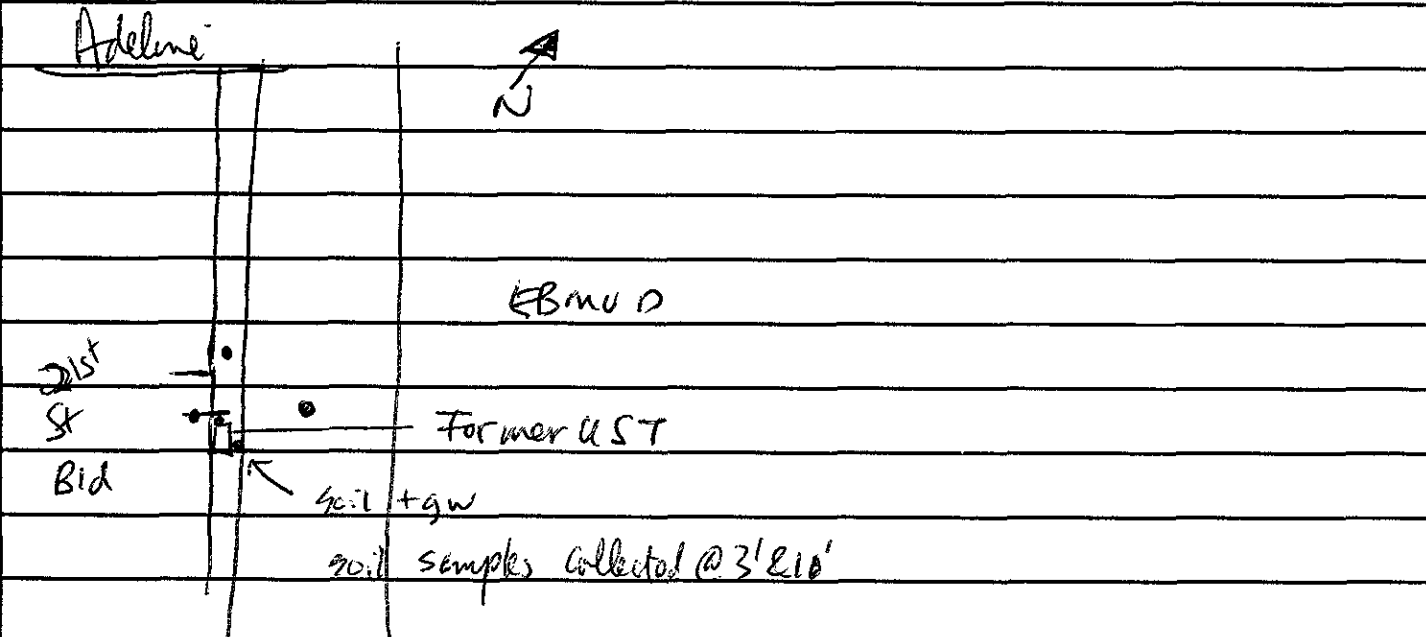 Adeline
N
EBMUD
21st
St
Former UST
Bld
soil + gw
soil samples collected @ 3' & 10'